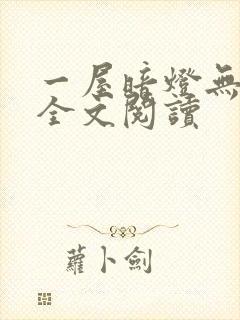 一屋暗燈無
全文閱讀
蘿卜劍